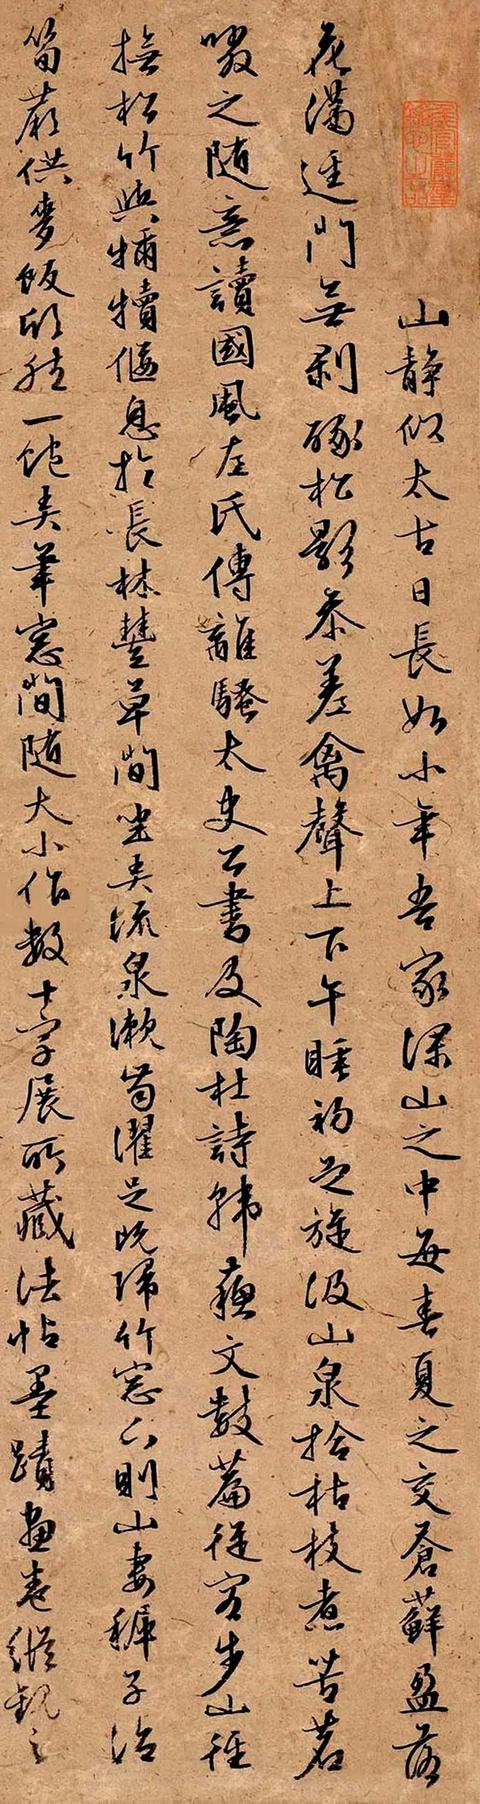 山静似太古日長如小年吾家深山之中每春夏之交蒼蘚盈落
花滿逕門無剥啄松影參差禽聲上下午睡初足旋汲山泉拾枯枝煮苦茗
啜之随意讀國風左氏傳離騷太史公書及陶杜詩韓蘇文數篇從容步山徑
撫松竹與麛犢偃息於長林豐草間坐弄流泉漱齒濯足既歸竹窓下則山妻稚子治
筍蕨供麥飯欣然一飽弄筆窓間随大小作數十字展所藏法帖墨蹟畫卷縱觀之